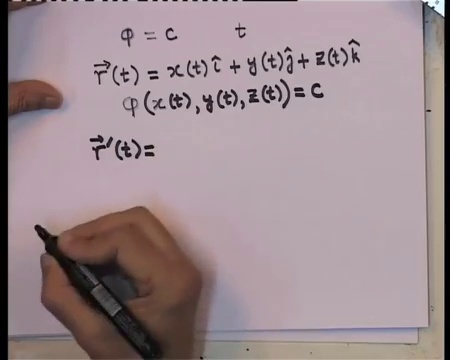 φ = c t
r⃗(t) = x(t)î + y(t)ĵ + z(t)k̂
φ(x(t), y(t), z(t)) = c
r⃗′(t) =